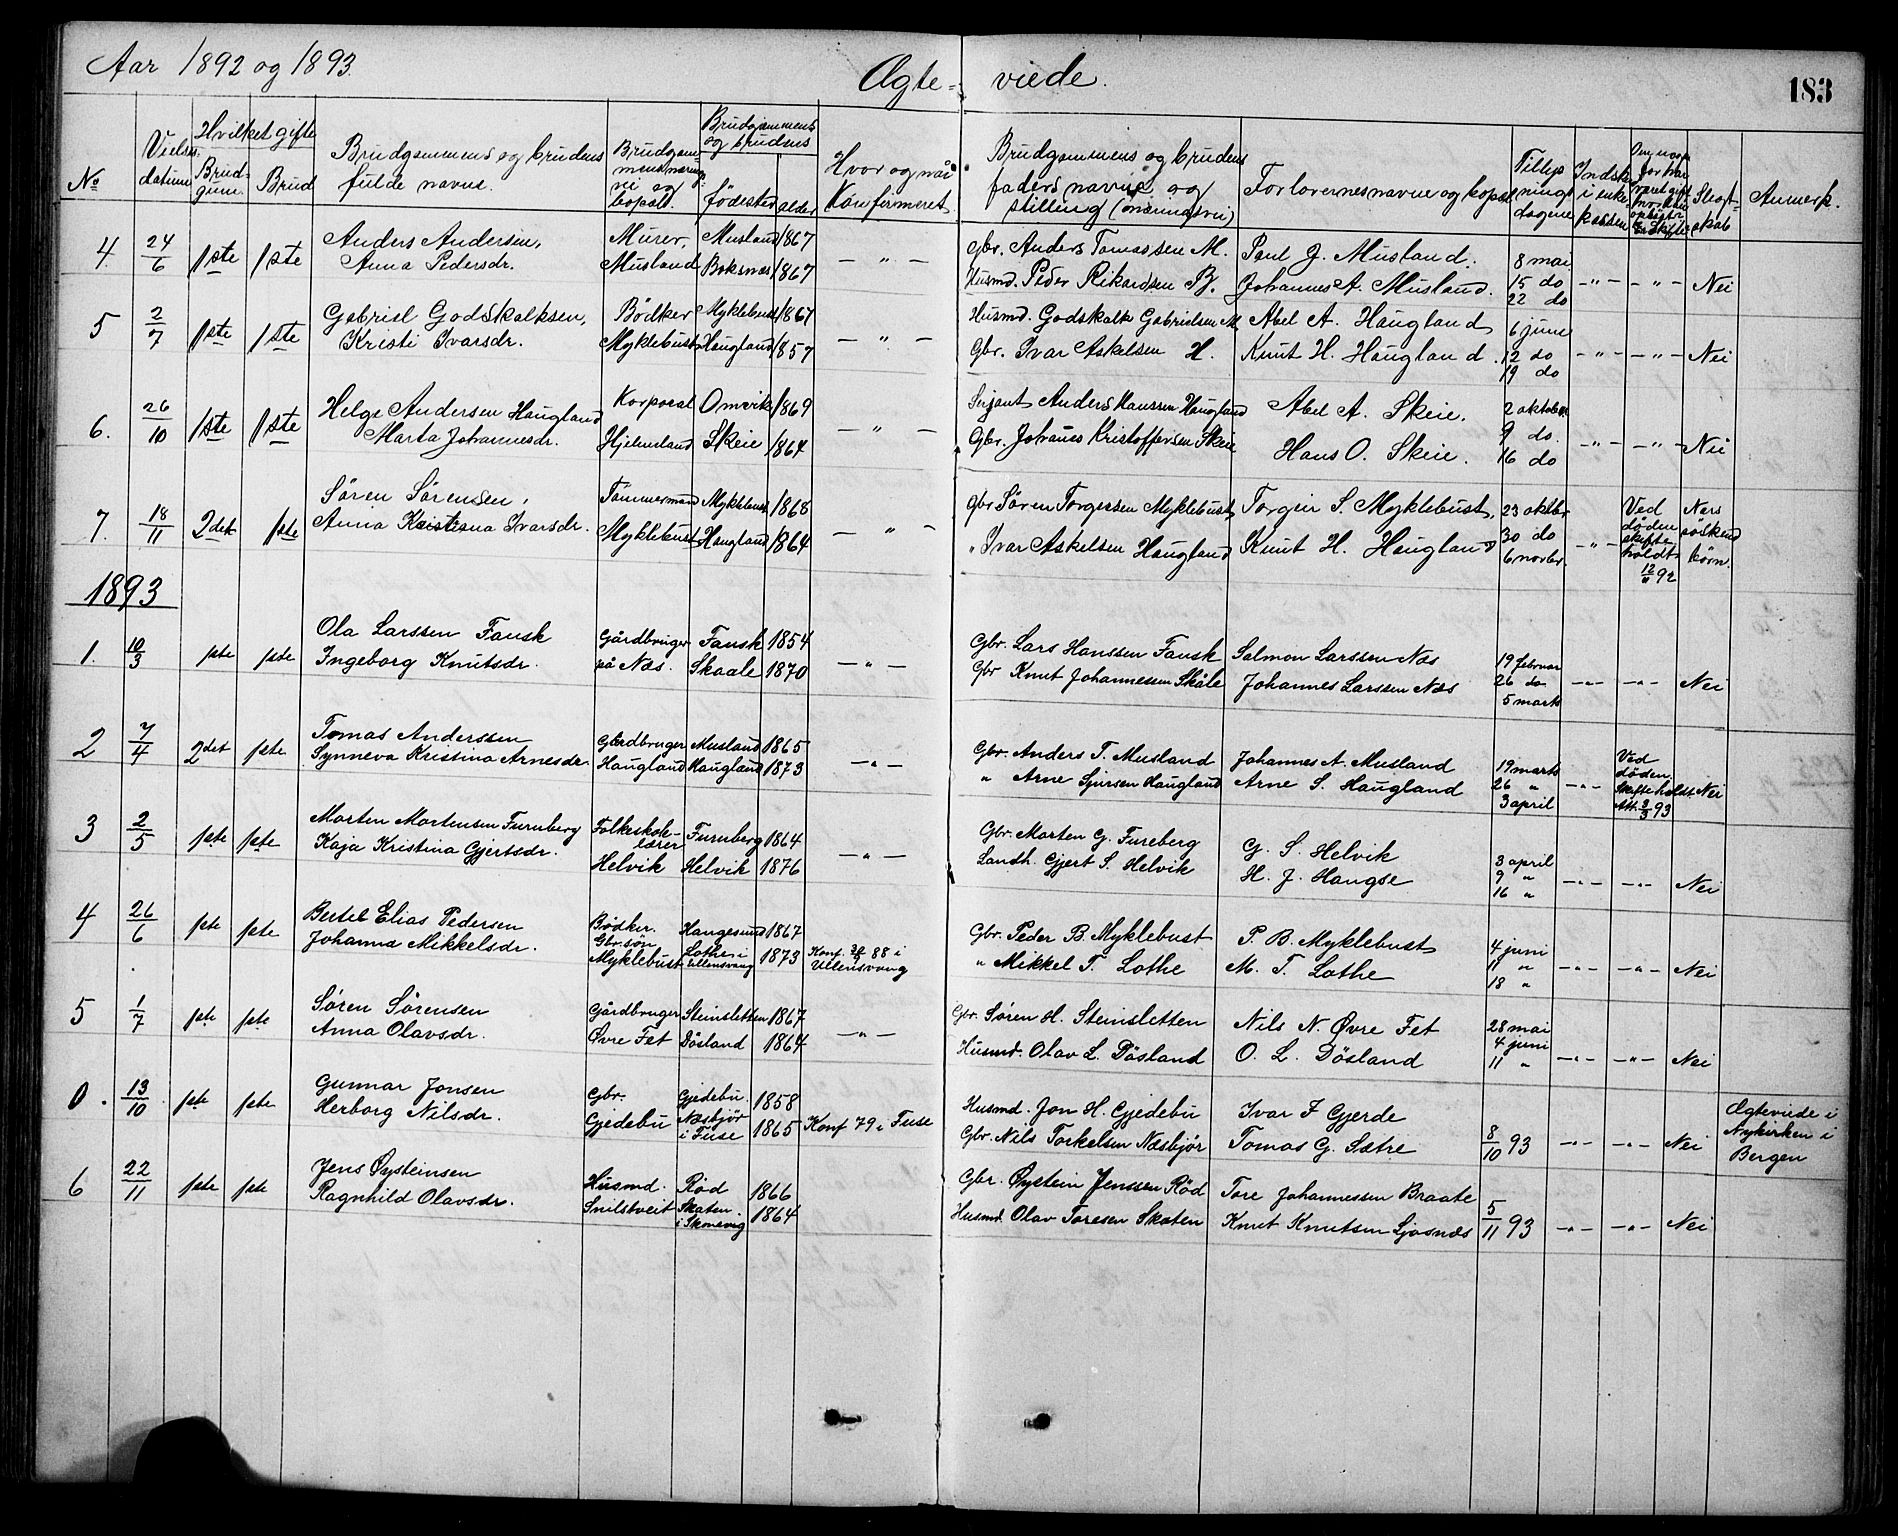 Aar 1892 og 1893.
Ægte- viede.
183
No
Vielses datum
Hvilket gifte
Brudgum. Brud
Brudgommens og brudens fulde navne.
Brudgommens næringsvei og bopæl.
Brudgommens og brudens
fødested alder
Hvor og når Konfirmeret
Brudgommens og brudens faders navne og stilling (næringsvei)
Forlovernes navne og bopæl
Tillysningsdagene
Indskud i enkekassen
Slegtskab
Anmerk.
4. 24/6 1ste 1ste Anders Andersen, Murer, Musland 1867 — " — Gbr. Anders Tomassen M. Paul J. Musland. 8 mai
Anna Pedersdr. Musland Boksnæs 1867 Husmd. Peder Rikardsen B. Johannes A. Musland. 15 do — " — — " — Nei
22 do
5 2/7 1ste 1ste Gabriel Godskalksen, Bödker Myklebust 1867 — " — Husmd. Godskalk Gabrielsen M. Abel A. Haugland 6 june
Kristi Ivarsdr. Myklebust Haugland 1857 Gbr. Ivar Askelsen H. Knut H. Haugland. 12 do — " — — " — Nei
19 do
6. 26/10 1ste 1ste Helge Andersen Haugland Korporal Omvik 1869 — " — Serjant Anders Hanssen Haugland Abel A. Skeie. 2 oktober
Marta Johannesdr. Hjelmeland Skeie 1864 Gbr. Johannes Kristoffersen Skeie Hans O. Skeie. 9 do. — " — — " — Nei
16 do
7. 18/11 2det 1ste Søren Sørensen, Tömmermand Myklebust 1868 — " — Gbr Søren Torgersen Myklebust Torgeir S. Myklebust, 23 oktbr Ved døden skifte holdt 12/11 92 Nærs söskend börn.
Anna Kristina Ivarsdr. Myklebust Haugland 1864 " Ivar Askelsen Haugland Knut H. Haugland 30 do — " —
6 novbr.
1893
1. 10/3 1ste 1ste Ola Larssen Fausk Gårdbruger Fausk 1854 — " — Gbr. Lars Hanssen Fausk Salmon Larssen Næs 19 februar
Ingeborg Knutsdr. på Næs. Skaale 1870 Gbr Knut Johannessen Skåle Johannes Larssen Næs 26 do — " — — " — Nei
5 marts
2 7/4 2det 1ste Tomas Anderssen Gårdbruger Musland 1865 — " — Gbr. Anders T. Musland Johannes A. Musland 19 marts Ved døden. Skifte holdt Att. 3/3 93
Synneva Kristina Arnesdr. Haugland Haugland 1873 " Arne Sjursen Haugland Arne S. Haugland 26 " — " — Nei
3 april
3 2/5 1ste 1ste Morten Mortensen Furuberg Folkeskolelærer Furuberg 1864 — " — Gbr. Morten G. Fureberg G. S. Helvik 3 april
Kaja Kristina Gjertsdr. Helvik Helvik 1876 Landh. Gjert S. Helvik H. J. Haugse 9 " — " — — " — Nei
16 "
4 26/6 1ste 1ste Bertel Elias Pedersen Bødker. Gbr.søn Haugesund 1867 Gbr. Peder B. Myklebust P. B. Myklebust 4 juni
Johanna Mikkelsdr. Myklebust Lothe i Ullensvang 1873 Konf. 88 i Ullensvang " Mikkel T. Lothe M. T. Lothe 11 " — " — — " — Nei
18 "
5 1/7 1ste 1ste Søren Sørensen Gårdbruger Steinsletten 1867 — " — Gbr. Søren H. Steinsletten Nils N. Øvre Fet 28 mai
Anna Olavsdr. Øvre Fet Døsland 1864 Husmd. Olav L. Døsland O. L. Døsland 4 juni — " — — " — Nei
11 "
0. 13/10 1ste 1ste Gunnar Jonsen Gbr. Gjedebu. 1858 Husmd. Jon H. Gjedebu Ivar J Gjerde Ægteviede i Nykirken i Bergen
Herborg Nilsdr. Gjedebu Næsbjør i Fuse 1865 Konf 79 i Fuse Gbr. Nils Torkelsen Næsbjør Tomas G. Sætre 8/10 93 — " — — " — Nei
6 22/11 1ste 1ste Jens Øysteinsen Husmd. Rød 1866 Gbr. Øystein Jenssen Rød Tore Johannessen Braate
Ragnhild Olavsdr. Snilstveit Skaten. i Skonevig 1864 Husmd. Olav Toresen Skaten Knut Knutsen Sjosnæs 5/11 93 — " — — " — Nei